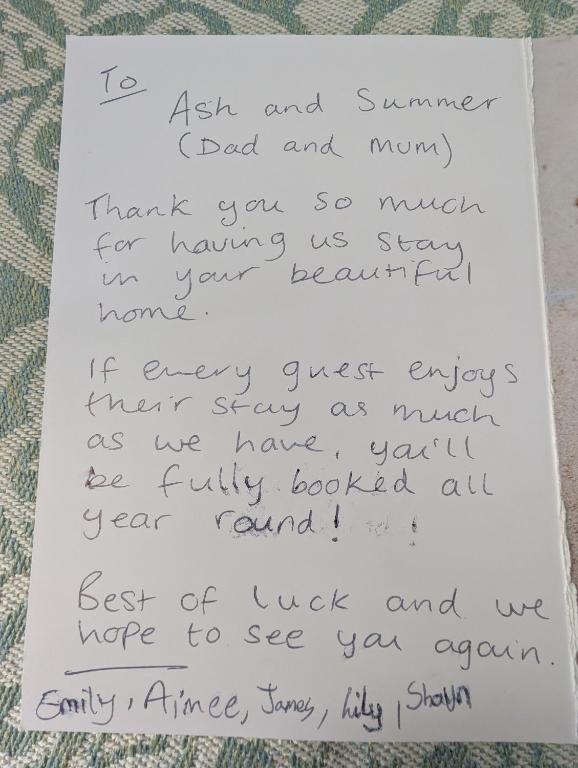 To
Ash and Summer
(Dad and Mum)
Thank you so much
for having us stay
in your beautiful
home.
If every guest enjoys
their stay as much
as we have, you'll
be fully booked all
year round! !
Best of luck and we
hope to see you again.
Emily, Aimee, James, Lily, Shaun